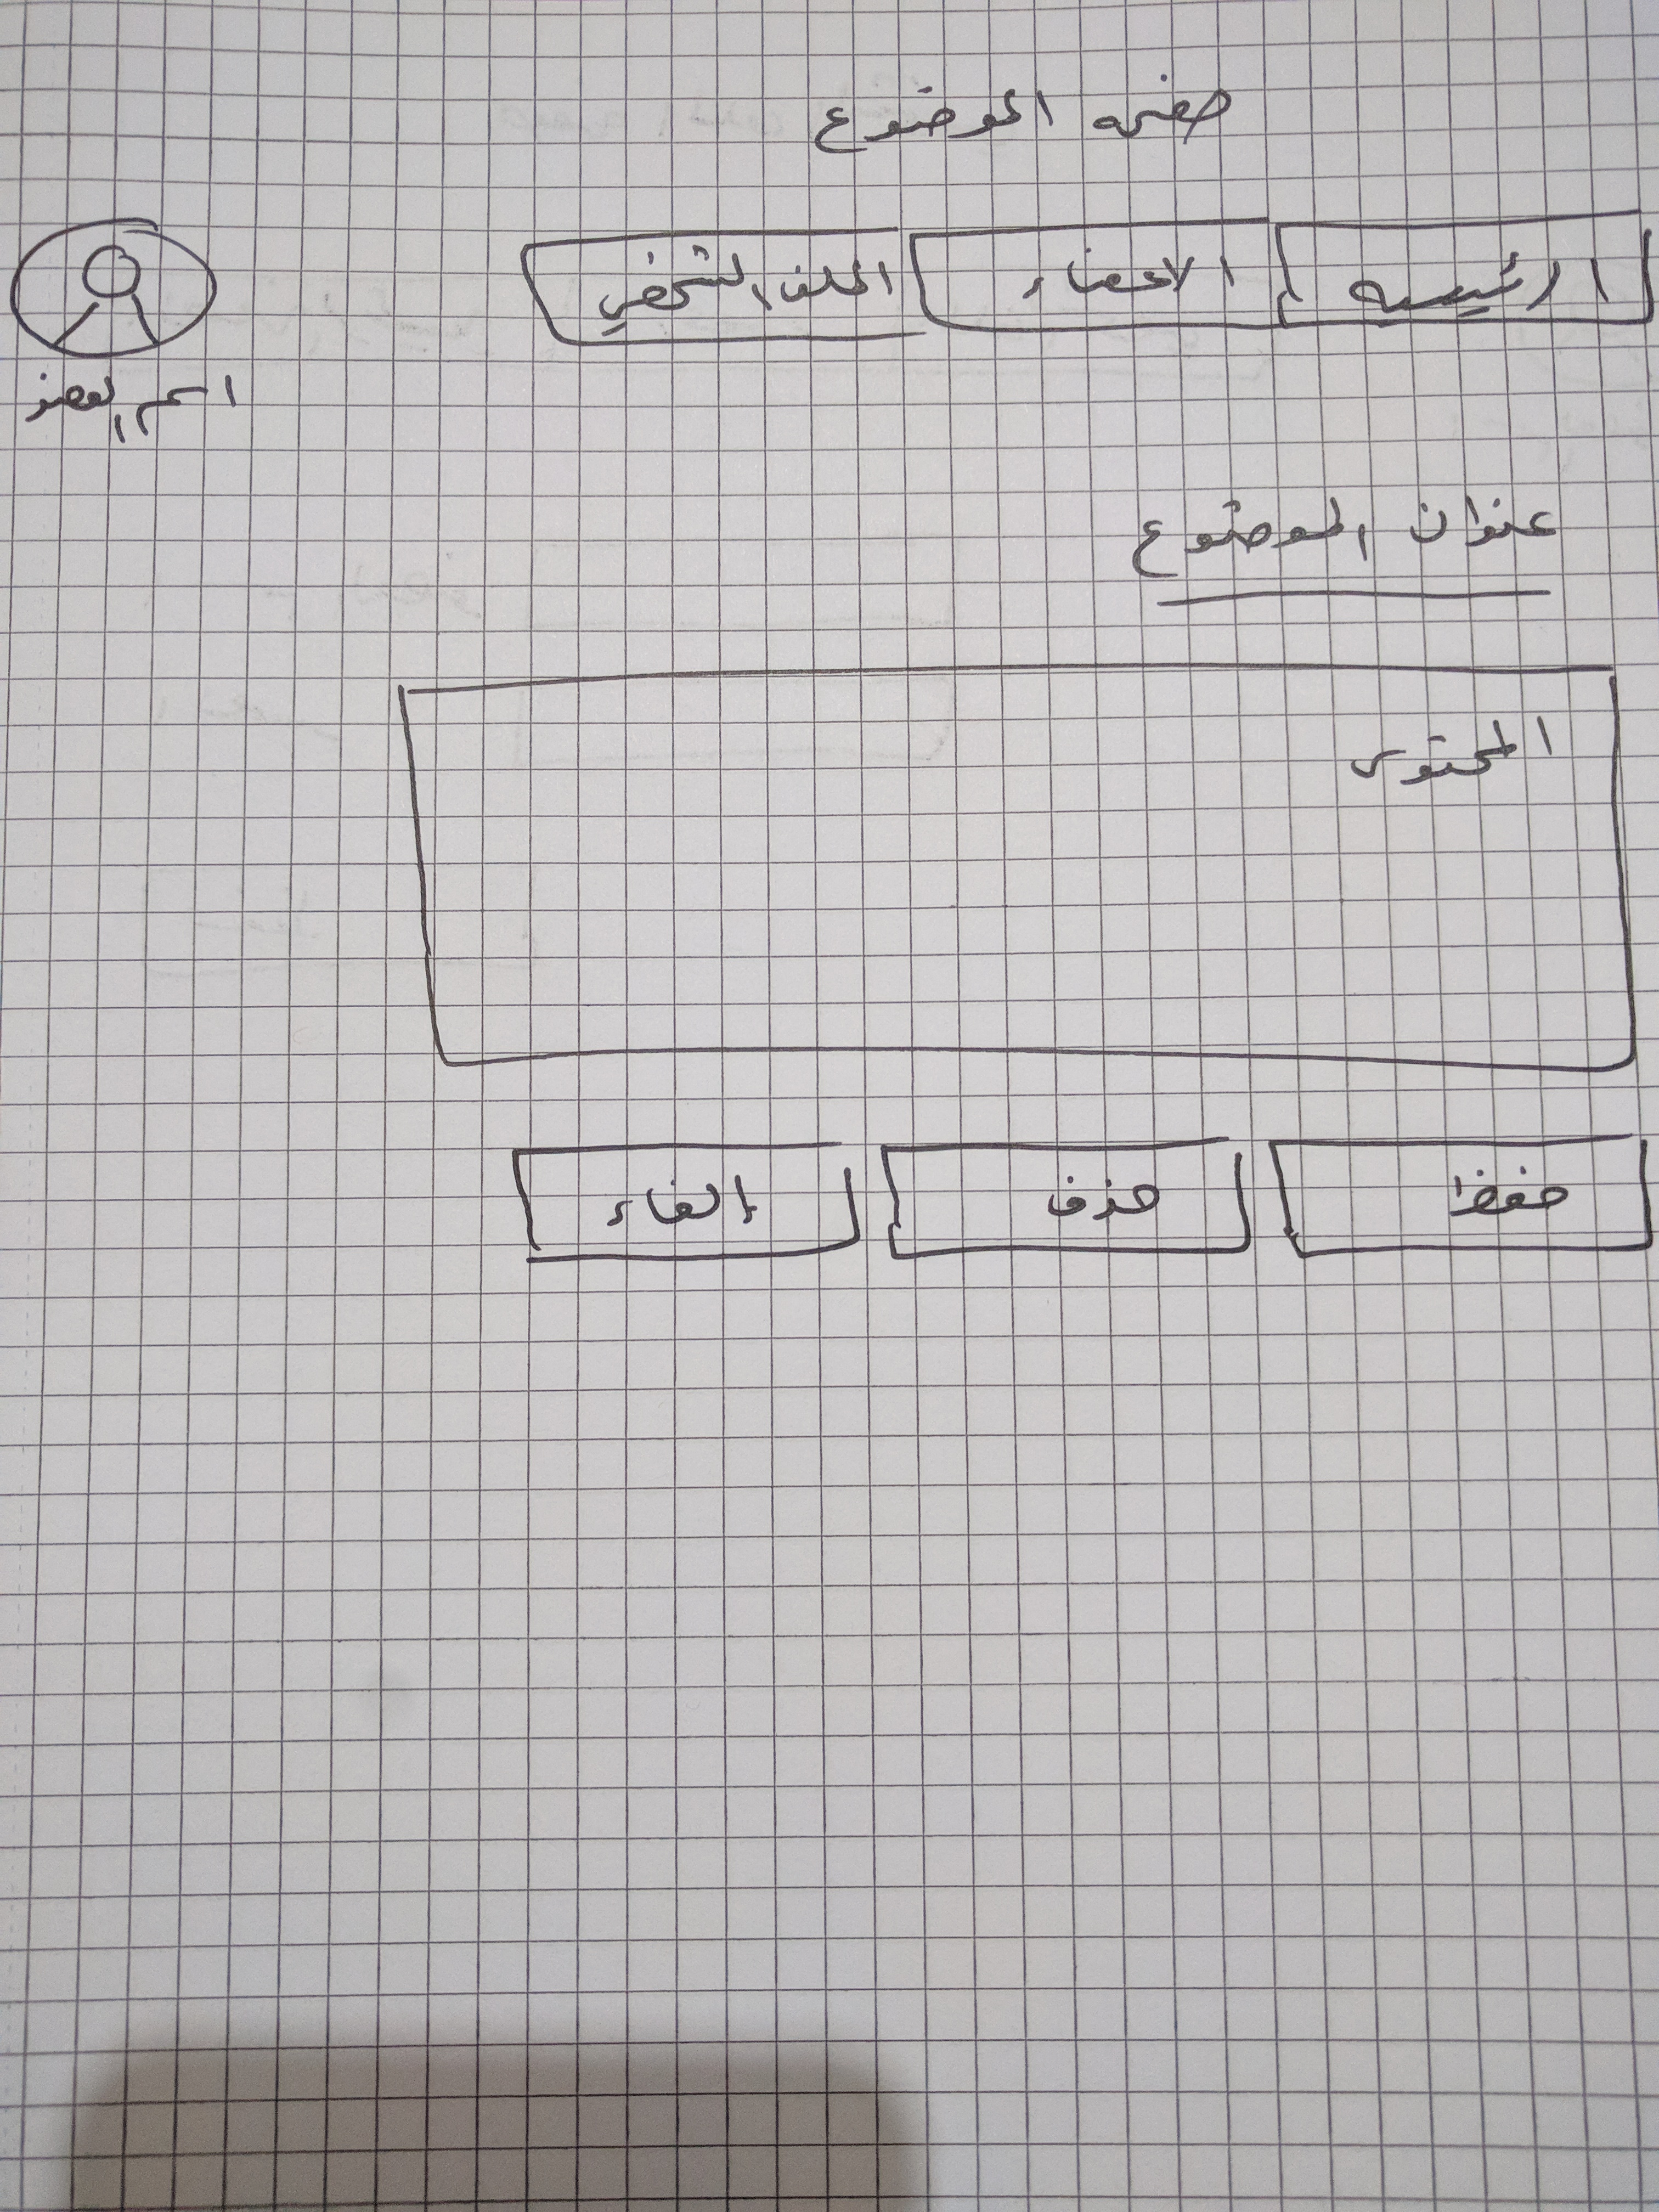 صفحه الموضوع
الرئيسيه
الاعضاء
الملف الشخصي
اسم العضو
عنوان الموضوع
المحتوى
حفظ
حذف
إلغاء